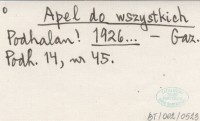 Apel do wszystkich
Podhalan! 1926... – Gaz.
Podh. 14, nr 45.